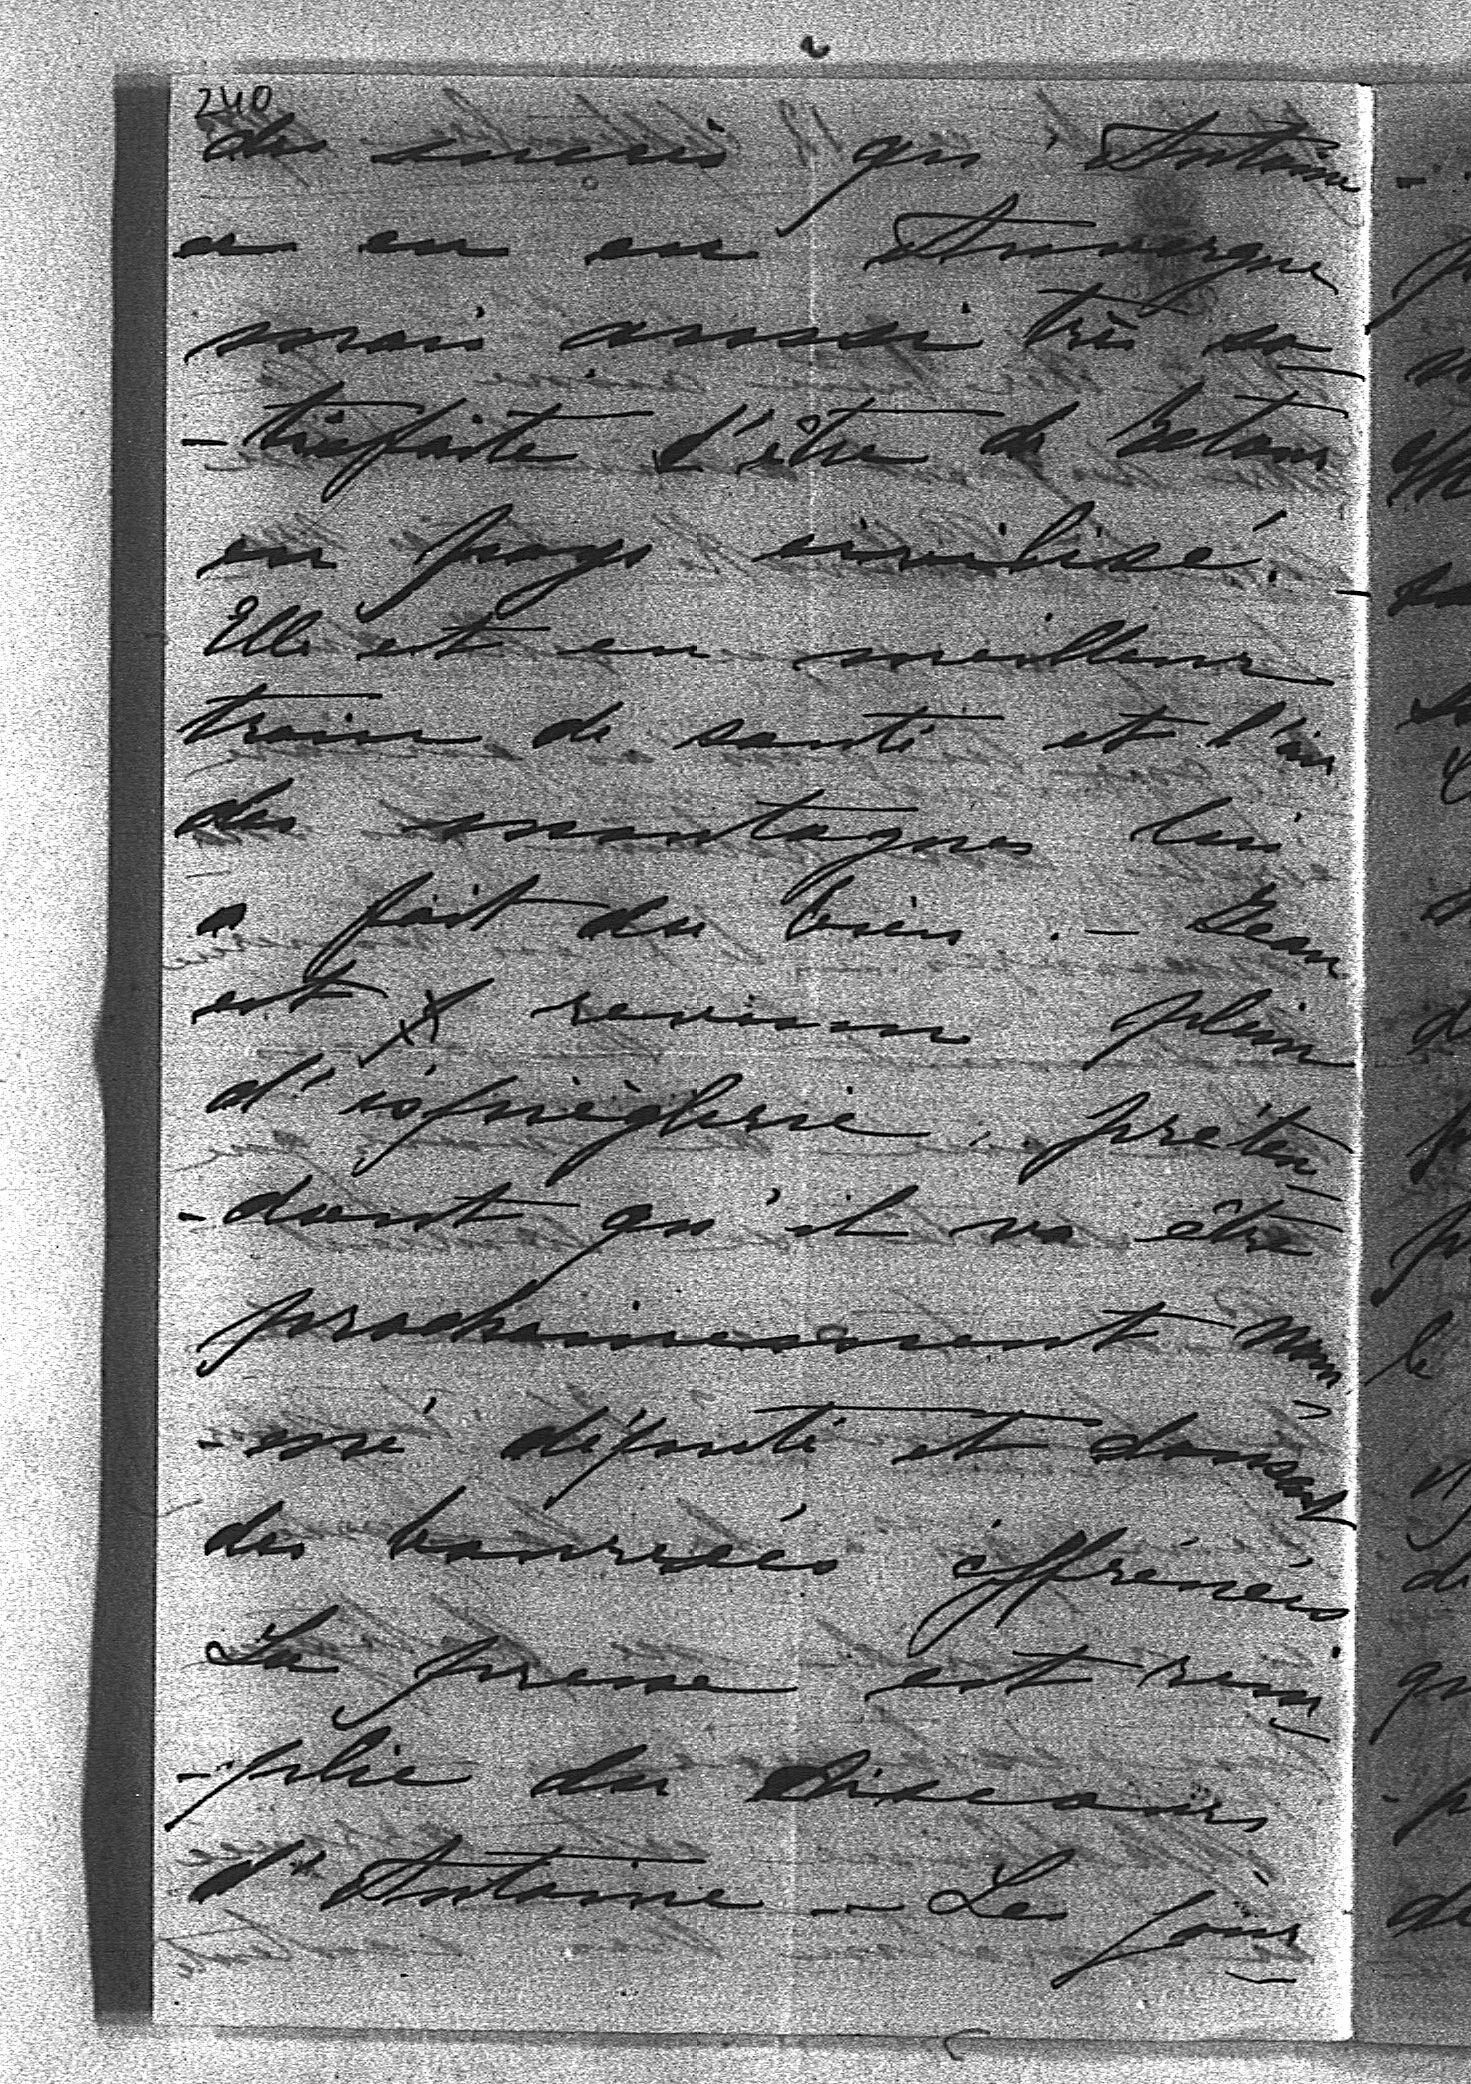 240
du succès qu'Antoine
a eu en Auvergne
mais aussi très sa
-tisfaite d'être de retour
en pays civilisé.
Elle est en meilleur
train de santé et l'air
des montagnes lui
a fait du bien. - Jean
est revenu plein
d'espièglerie préten
-dant qu'il va être
prochainement nom
-mé député et dansant
des bourrées effrénées
La presse est rem
-plie du discours
d'Antoine - Les jour